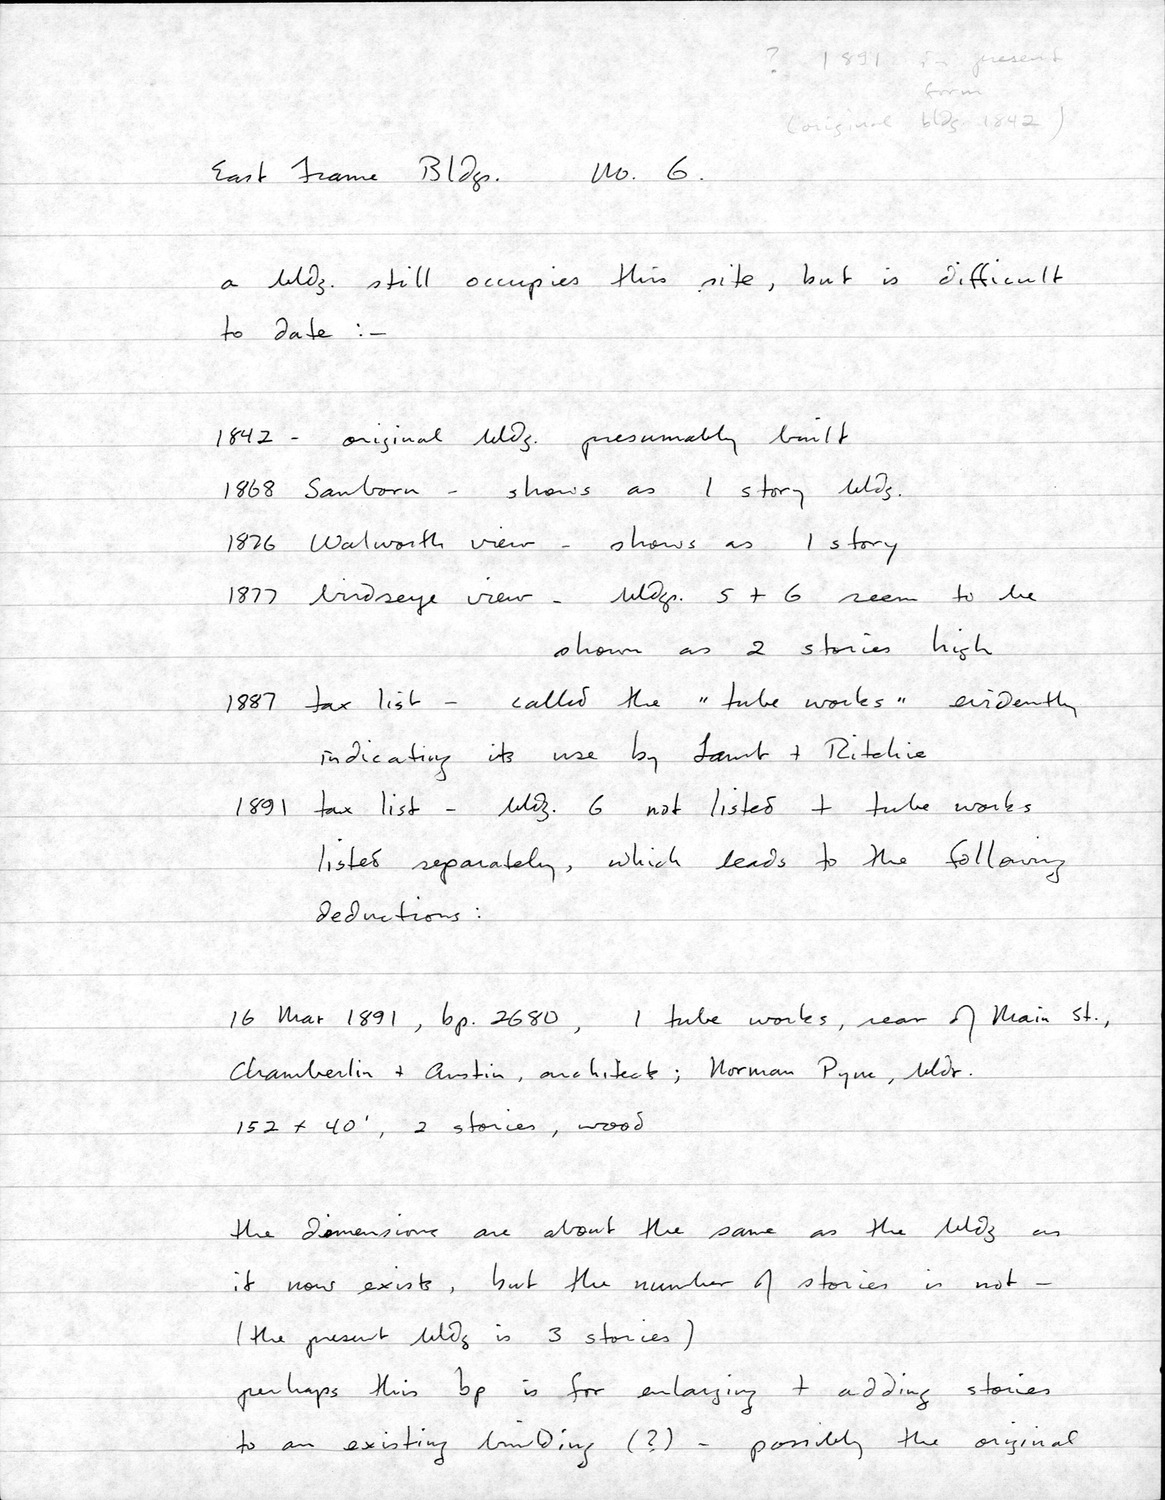 ? 1891 in present
form
(original bldg 1842)
East Frame Bldgs. No. 6.
a bldg. still occupies this site, but is difficult
to date :—
1842 - original bldg. presumably built
1868 Sanborn - shows as 1 story bldg.
1876 Walworth view - shows as 1 story
1877 birdseye view - bldgs. 5 + 6 seem to be
shown as 2 stories high
1887 tax list - called the "tube works" evidently
indicating its use by Lamb + Ritchie
1891 tax list - bldg. 6 not listed + tube works
listed separately, which leads to the following
deductions:
16 Mar 1891, bp. 2680, 1 tube works, rear of Main St.,
Chamberlin + Austin, architects; Norman Pyne, bldr.
152 x 40', 2 stories, wood
the dimensions are about the same as the bldg as
it now exists, but the number of stories is not -
(the present bldg is 3 stories)
perhaps this bp is for enlarging + adding stories
to an existing building (?) - possibly the original